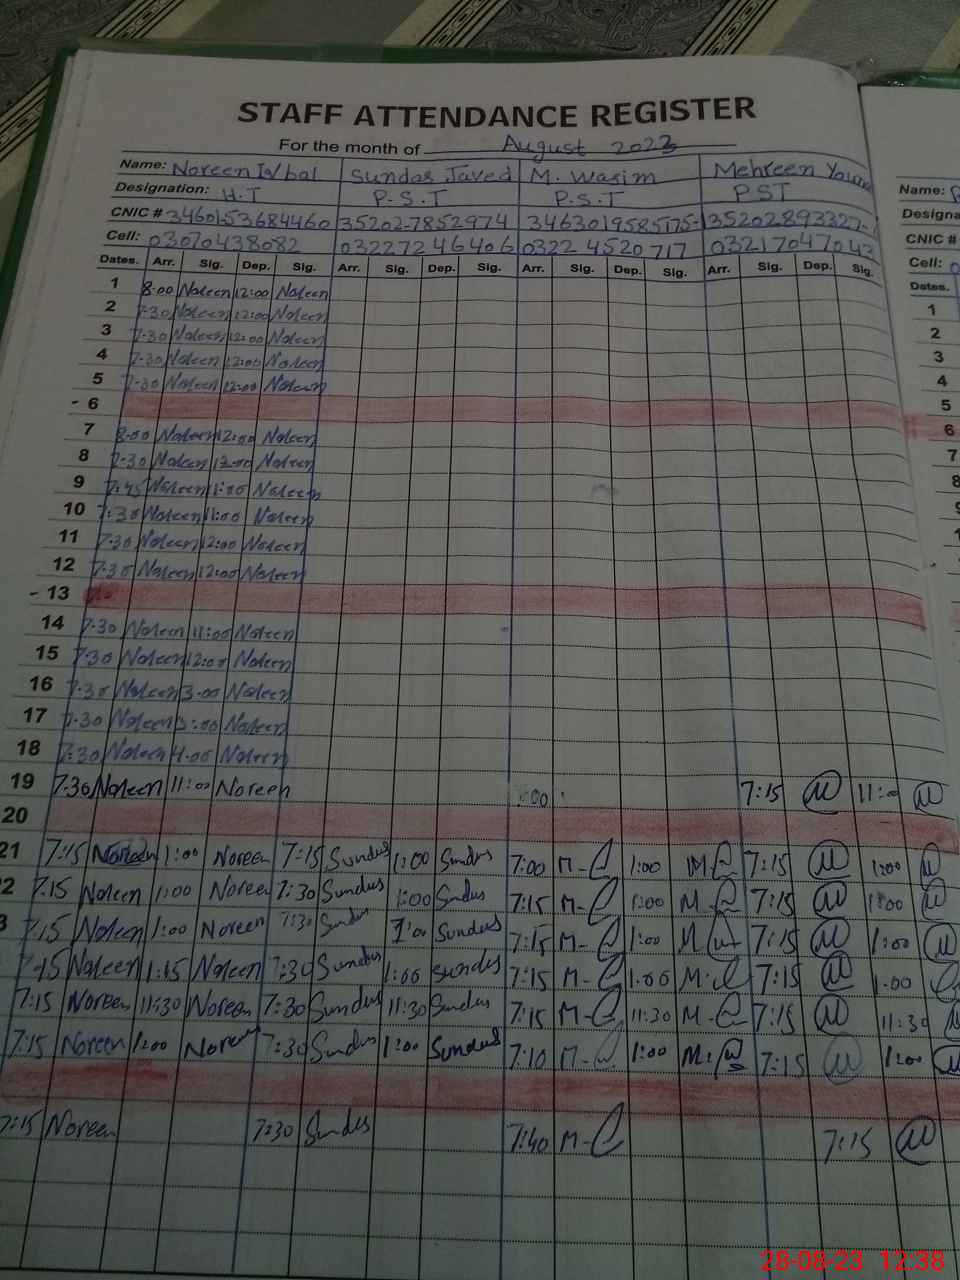 STAFF ATTENDANCE REGISTER
For the month of August 2023
Name: Noreen Iqbal Sundas Javed M. Wasim Mehreen
Designation: H.T P.S.T P.S.T PST
CNIC # 3460153684460 35202-7852974 3463019585175- 35202893327-
Cell: 03070438082 03227246406 0322 4520717 0321704704
Dates. Arr. Sig. Dep. Sig. Arr. Sig. Dep. Sig. Arr. Sig. Dep. Sig. Arr. Sig. Dep. Sig.
1 8-00 Noreen 12:00 Noreen
2 7-30 Noreen 12:00 Noreen
3 7-30 Noreen 12:00 Noreen
4 7-30 Noreen 12:00 Noreen
5 7-30 Noreen 12:00 Noreen
- 6
7 8-00 Noreen 12:00 Noreen
8 7-30 Noreen 12:00 Noreen
9 7:45 Noreen 11:00 Noreen
10 7:30 Noreen 11:00 Noreen
11 7-30 Noreen 12:00 Noreen
12 7-30 Noreen 12:00 Noreen
- 13
14 7-30 Noreen 11:00 Noreen
15 7-30 Noreen 12:00 Noreen
16 7-30 Noreen 3-00 Noreen
17 7-30 Noreen :00 Noreen
18 7:30 Noreen 4-00 Noreen
19 7-30 Noreen 11:00 Noreen :00 7:15 11:00
20
21 7:15 Noreen 1:00 Noreen 7:15 Sundus 1:00 Sundus 7:00 M- 1:00 M- 7:15 1:00
2 7:15 Noreen 1:00 Noreen 7:30 Sundus 1:00 Sundus 7:15 M- 1:00 M- 7:15 1:00
3 7:15 Noreen 1:00 Noreen 7:30 Sundus 1:00 Sundus 7:15 M- 1:00 M 7:15 1:00
7:15 Noreen 1:15 Noreen 7:30 Sundus 1:00 Sundus 7:15 M- 1:00 M. 7:15 1:00
7:15 Noreen 11:30 Noreen 7:30 Sundus 11:30 Sundus 7:15 M- 11:30 M- 7:15 11:30
7:15 Noreen 1:00 Noreen 7:30 Sundus 1:00 Sundus 7:10 M- 1:00 M. 7:15 1:00
7:15 Noreen 7:30 Sundus 7:40 M- 7:15
Name:
Designa
CNIC #
Cell:
Dates.
1
2
3
4
5
6
7
8
9
10
11
12
28-08-23 12:38